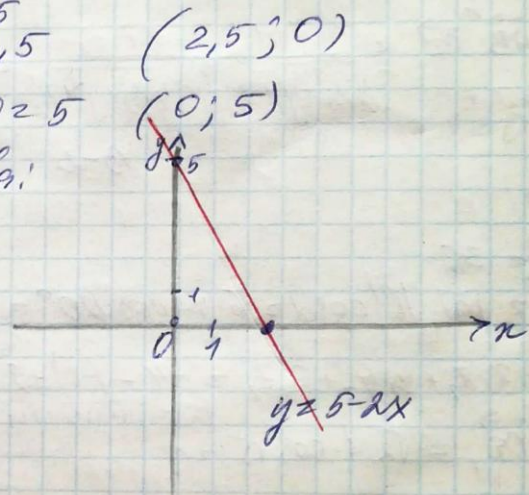 5
,5 (2,5; 0)
0 = 5 (0; 5)
y
5
1
0 1 x
y = 5-2x